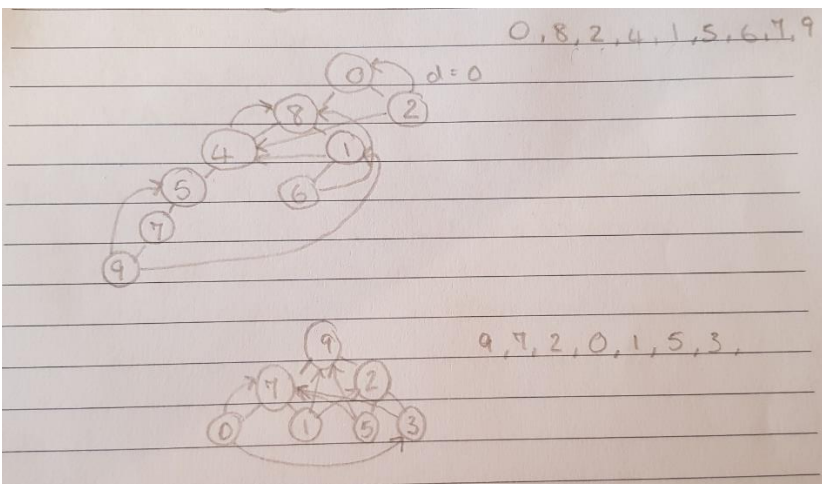 0, 8, 2, 4, 1, 5, 6, 7, 9
0 d = 0
8 2
4 1
5 6
7
9
9, 7, 2, 0, 1, 5, 3,
9
7 2
0 1 5 3